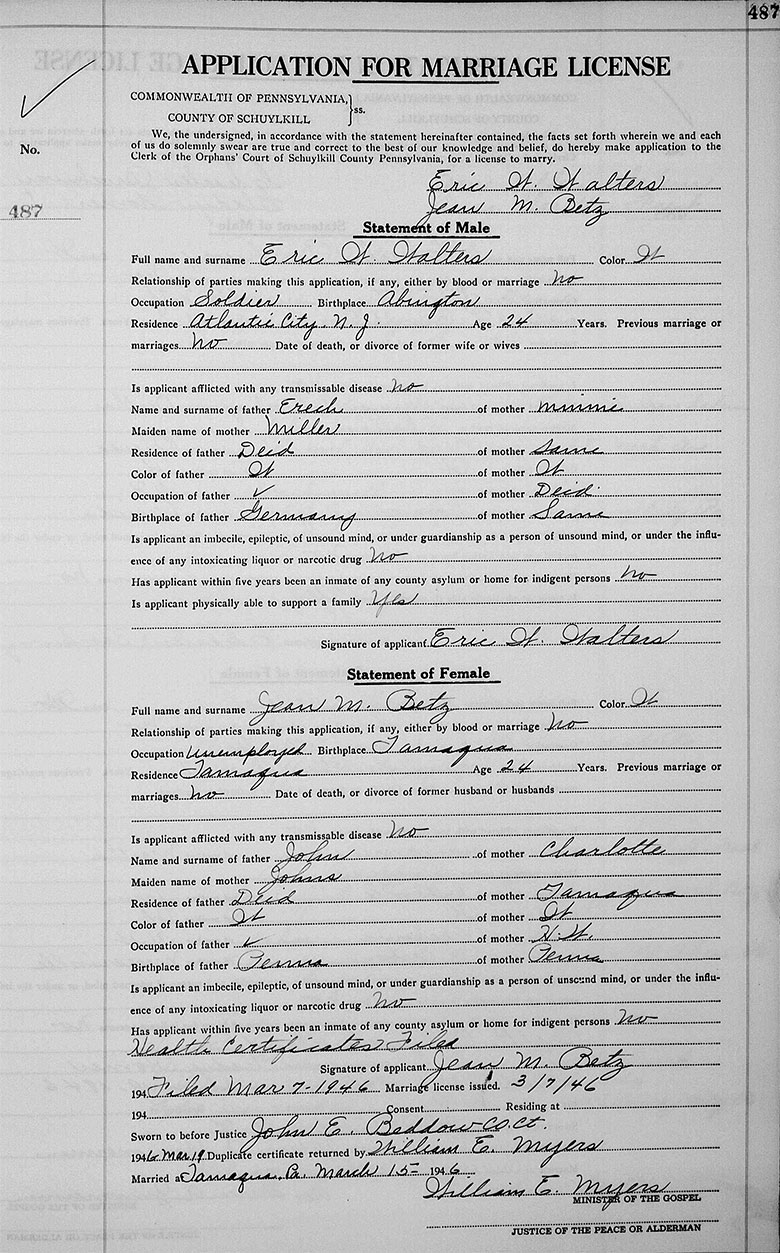 487
APPLICATION FOR MARRIAGE LICENSE
COMMONWEALTH OF PENNSYLVANIA, } ss.
COUNTY OF SCHUYLKILL
We, the undersigned, in accordance with the statement hereinafter contained, the facts set forth wherein we and each
of us do solemnly swear are true and correct to the best of our knowledge and belief, do hereby make application to the
Clerk of the Orphans' Court of Schuylkill County Pennsylvania, for a license to marry.
No.
487
Eric W. Walters
Jean M. Betz
Statement of Male
Full name and surname Eric W. Walters Color W
Relationship of parties making this application, if any, either by blood or marriage No
Occupation Soldier Birthplace Abington
Residence Atlantic City N. J. Age 24 Years. Previous marriage or
marriages No Date of death, or divorce of former wife or wives
Is applicant afflicted with any transmissable disease No
Name and surname of father Erech of mother Minnie
Maiden name of mother Miller
Residence of father Deid of mother Same
Color of father W of mother W
Occupation of father ✓ of mother Deid
Birthplace of father Germany of mother Same
Is applicant an imbecile, epileptic, of unsound mind, or under guardianship as a person of unsound mind, or under the influ-
ence of any intoxicating liquor or narcotic drug No
Has applicant within five years been an inmate of any county asylum or home for indigent persons No
Is applicant physically able to support a family Yes
Signature of applicant Eric W. Walters
Statement of Female
Full name and surname Jean M. Betz Color W
Relationship of parties making this application, if any, either by blood or marriage No
Occupation Unemployed Birthplace Tamaqua
Residence Tamaqua Age 24 Years. Previous marriage or
marriages No Date of death, or divorce of former husband or husbands
Is applicant afflicted with any transmissable disease No
Name and surname of father John of mother Charlotte
Maiden name of mother Johns
Residence of father Deid of mother Tamaqua
Color of father W of mother W
Occupation of father ✓ of mother H.W.
Birthplace of father Penna of mother Penna
Is applicant an imbecile, epileptic, of unsound mind, or under guardianship as a person of unsound mind, or under the influ-
ence of any intoxicating liquor or narcotic drug No
Has applicant within five years been an inmate of any county asylum or home for indigent persons No
Health Certificates Filed
Signature of applicant Jean M. Betz
194 Filed Mar 7-1946 Marriage license issued. 3/7/46
194 Consent Residing at
Sworn to before Justice John E. Beddow Co. Ct.
1946 Mar 19 Duplicate certificate returned by William E. Myers
Married at Tamaqua, Pa. March 15 - 1946
William E. Myers
MINISTER OF THE GOSPEL
JUSTICE OF THE PEACE OR ALDERMAN